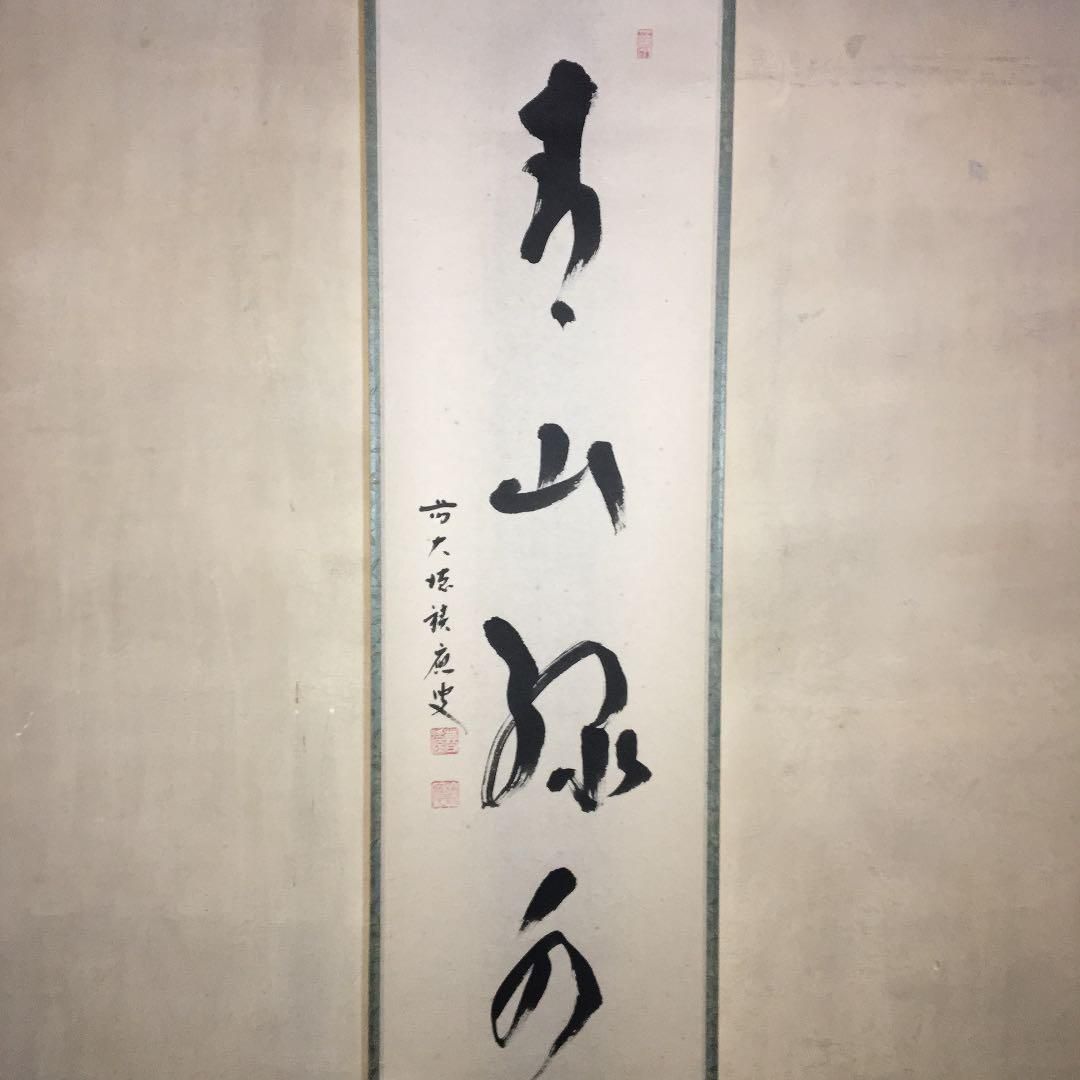 青山緑水
前大徳積應叟